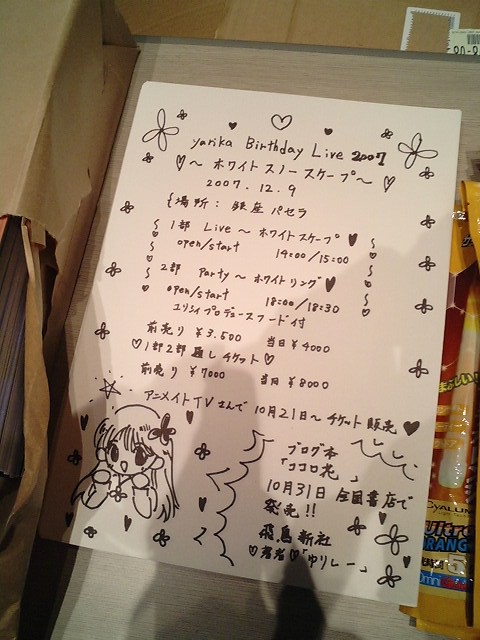 yurika Birthday Live 2007
～ホワイトスノースケープ～
2007.12.9
場所：銀座パセラ
1部 Live～ホワイトスケープ
open/start 14:00/15:00
2部 Party～ホワイトリング
open/start 18:00/18:30
ユリシィプロデュースフード付
前売り ¥3.500 当日 ¥4000
♡1部2部通しチケット♡
前売り ¥7000 当日 ¥8000
アニメイトTVさんで10月21日～チケット販売
ブログ本
「ココロ光」
10月31日全国書店で
発売!!
飛鳥新社
♡著者♡「ゆりしー」
CYALUME
Ultra
ORANGE